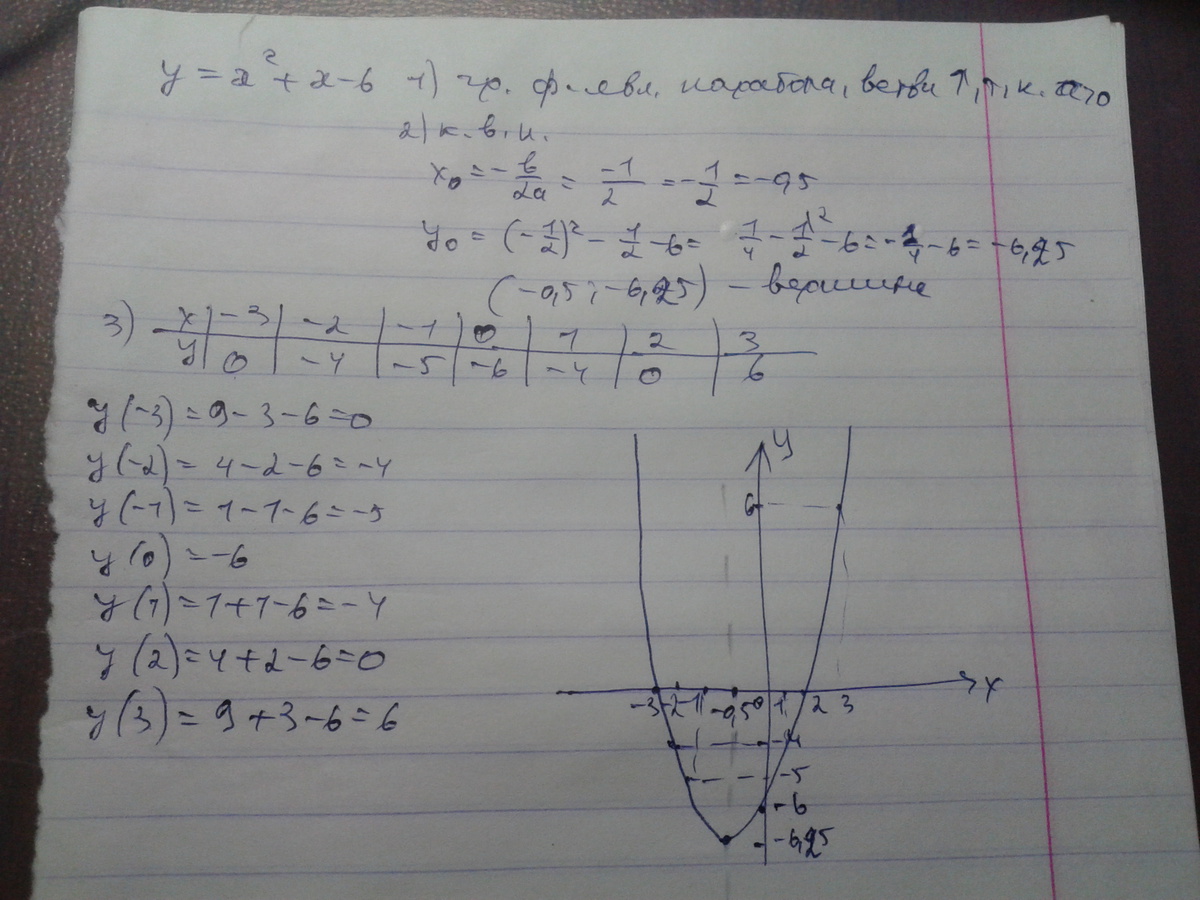 y = x² + x - 6 1) гр. ф. явл. парабола, ветви ↑, т, к. a>0
2) к. в. н.
x₀ = - b/2a = -1/2 = - 1/2 = -0,5
y₀ = (- 1/2)² - 1/2 - 6 = 1/4 - 1/2 ² - 6 = - 1/4 - 6 = -6,25
(-0,5; -6,25) - вершина
3) x | -3 | -2 | -1 | 0 | 1 | 2 | 3
y | 0 | -4 | -5 | -6 | -4 | 0 | 6
y(-3) = 9 - 3 - 6 = 0
y(-2) = 4 - 2 - 6 = -4
y(-1) = 1 - 1 - 6 = -5
y(0) = -6
y(1) = 1 + 1 - 6 = -4
y(2) = 4 + 2 - 6 = 0
y(3) = 9 + 3 - 6 = 6
y
6
x
-3 -2 -1 -0,5 0 1 2 3
-4
-5
-6
-6,25